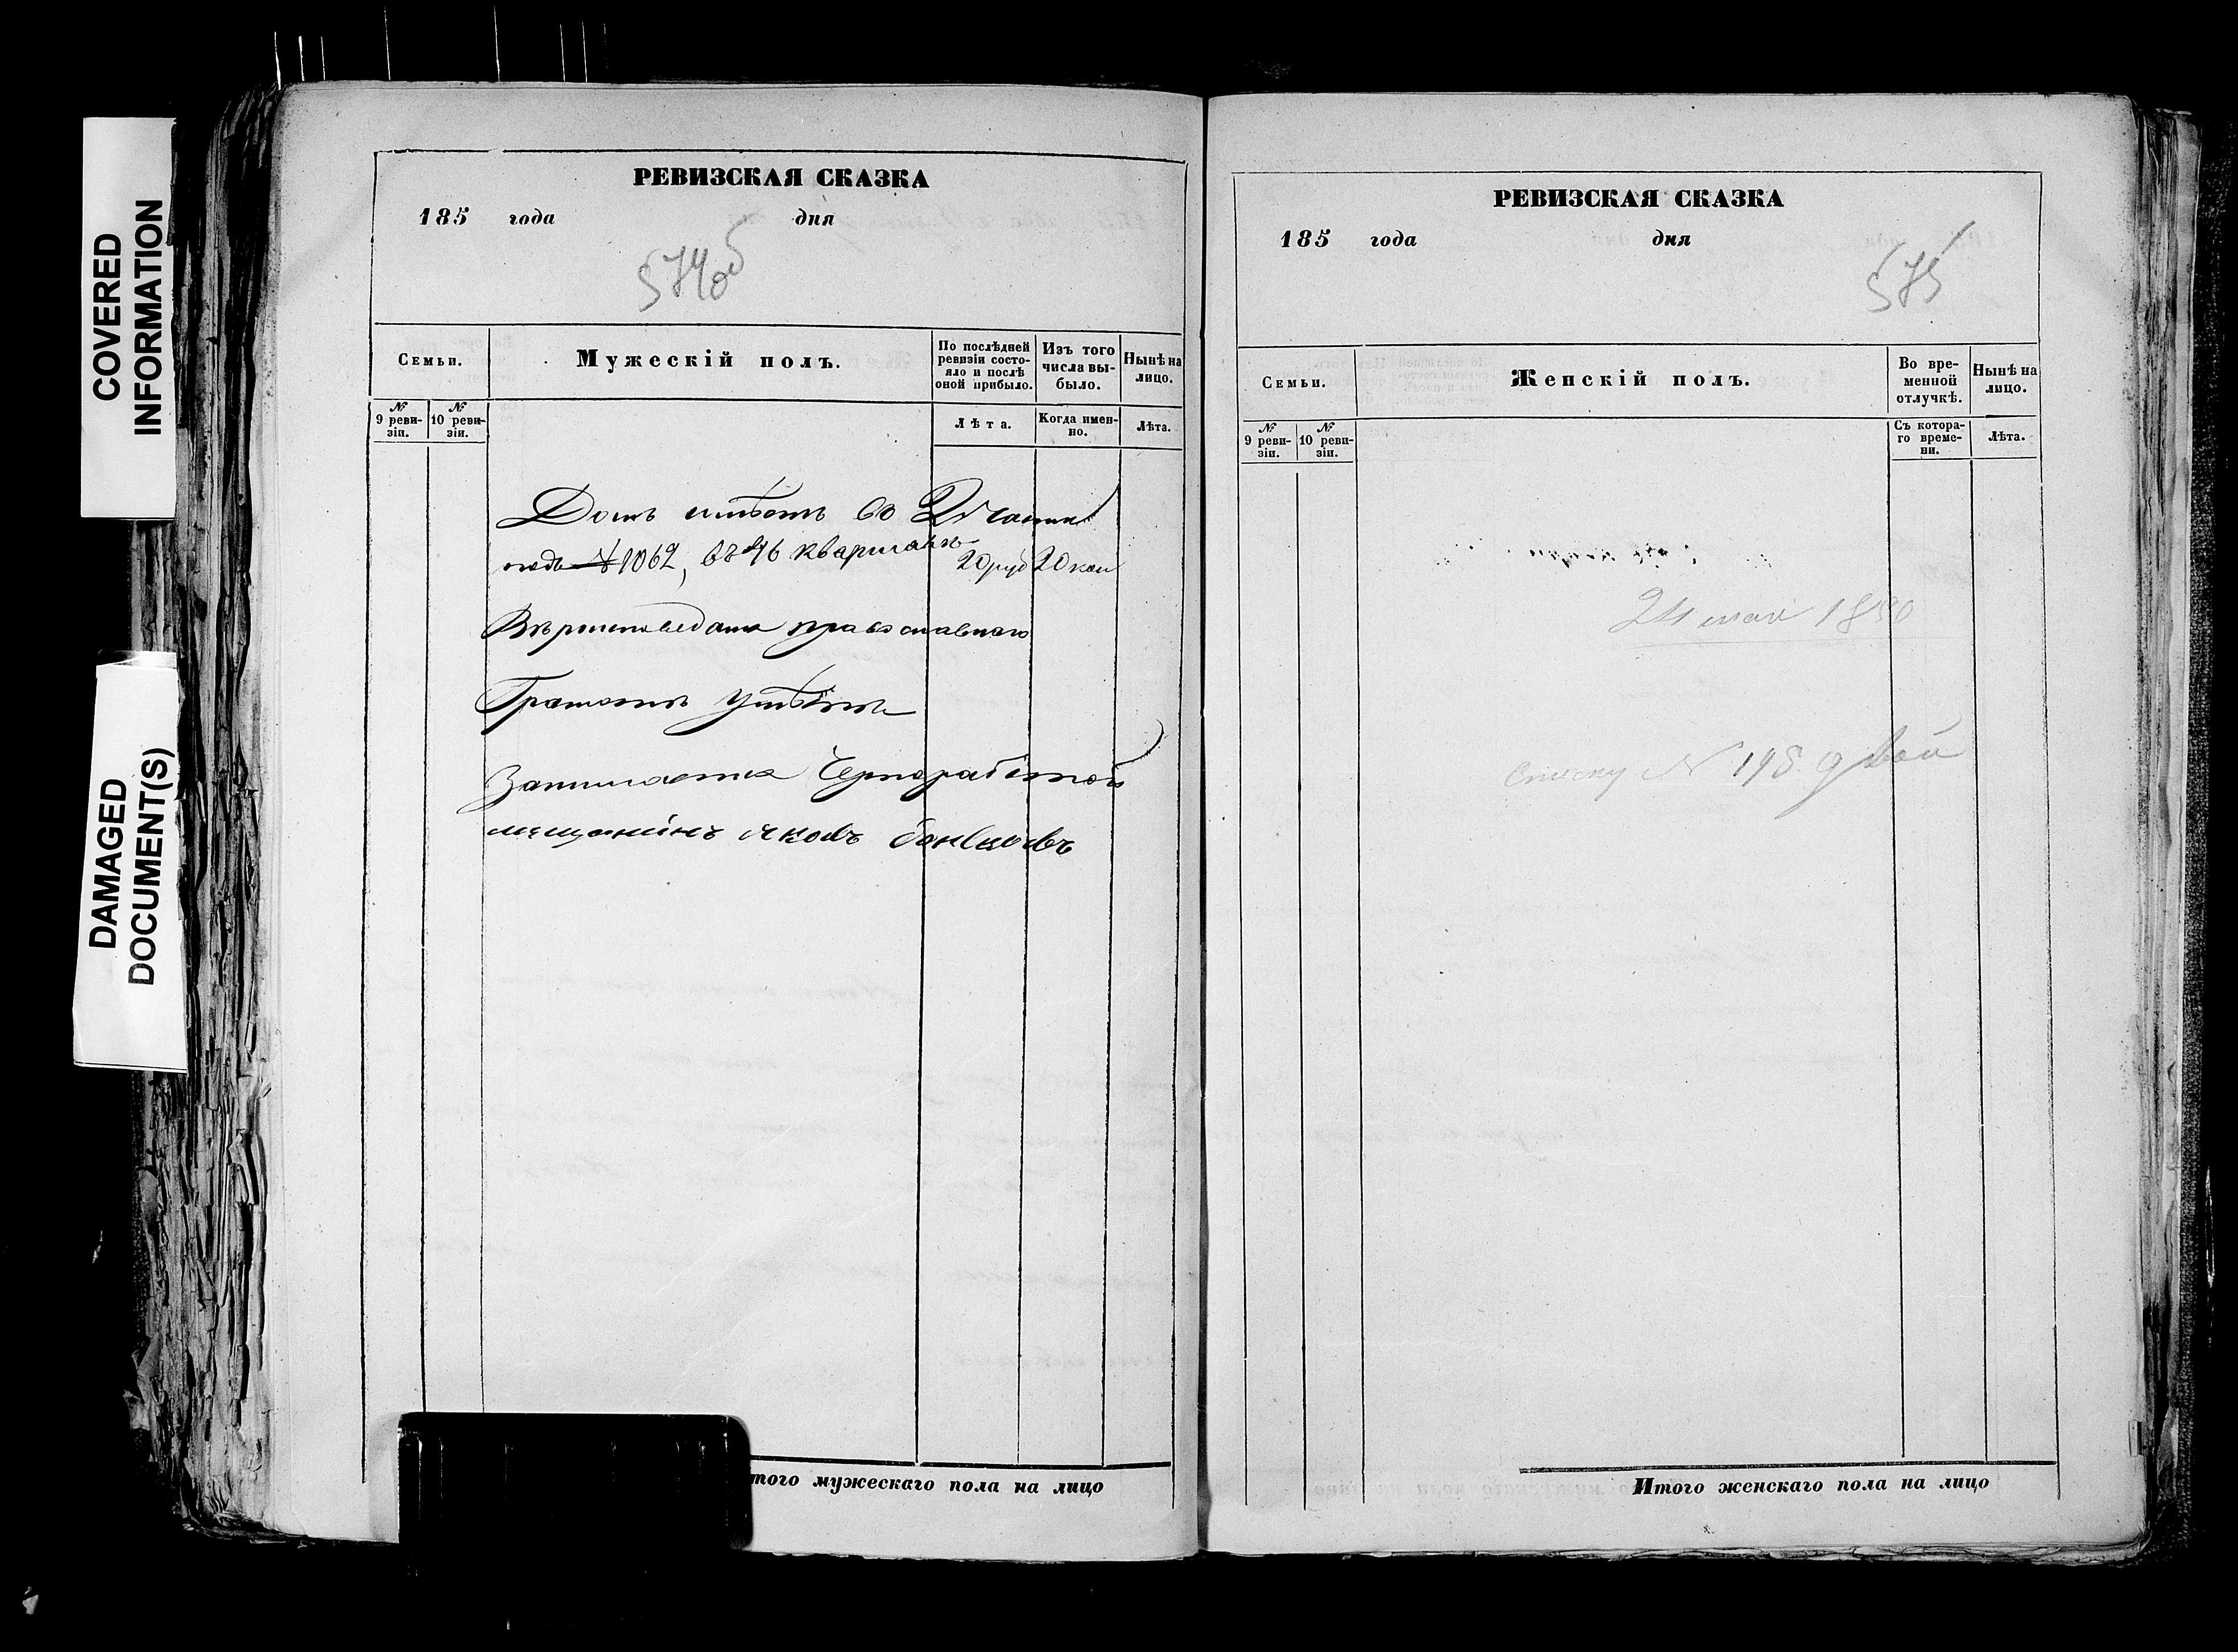 COVERED
INFORMATION
DAMAGED
DOCUMENT(S)
РЕВИЗСКАЯ СКАЗКА
185 года дня
574об
Семьи.
Мужескій полъ.
По послѣдней
ревизіи состо-
яло и послѣ
оной прибыло.
Изъ того
числа вы-
было.
Нынѣ на
лицо.
№
9 реви-
зіи.
№
10 реви-
зіи.
Лѣта.
Когда имен-
но.
Лѣта.
Домъ имѣетъ во 2й части
подъ № 1062, въ 46 кварталѣ 20 руб 20 коп
Вѣроисповеданія православнаго
Грамотѣ умѣетъ
Занимается Чернорабочей
мещанинъ яковъ
РЕВИЗСКАЯ СКАЗКА
185 года дня
575
Семьи.
Женскій полъ.
Во вре-
менной
отлучкѣ.
Нынѣ на
лицо.
№
9 реви-
зіи.
№
10 реви-
зіи.
Съ котора-
го време-
ни.
Лѣта.
24 мая 1850
№ 198
того мужескаго пола на лицо
Итого женскаго пола на лицо